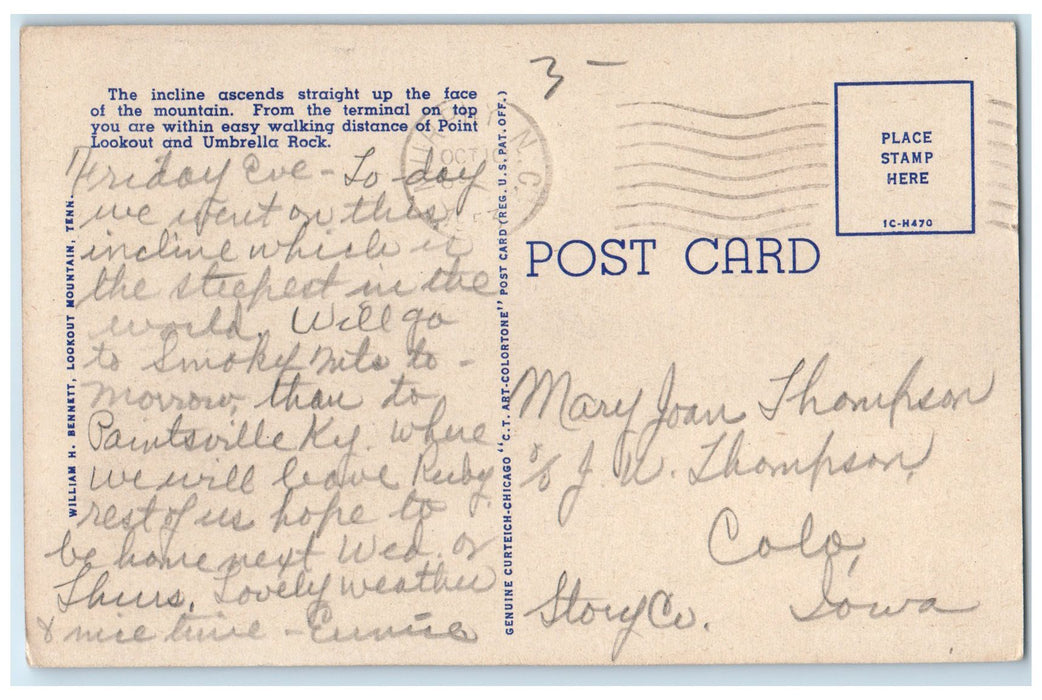 The incline ascends straight up the face
of the mountain. From the terminal on top
you are within easy walking distance of Point
Lookout and Umbrella Rock.
Friday Eve - To-day
we went on this
incline which is
the steepest in the
world. Will go
to Smoky Mts to-
morrow, than to
Paintsville Ky. where
we will leave Ruby,
rest of us hope to
be home next Wed. or
Thurs. Lovely weather
& nice time - Eunice
WILLIAM H. BENNETT, LOOKOUT MOUNTAIN, TENN.
GENUINE CURTEICH-CHICAGO "C.T. ART-COLORTONE" POST CARD (REG. U.S. PAT. OFF.)
3 -
N.C.
OCT
PLACE
STAMP
HERE
1C-H470
POST CARD
Mary Joan Thompson
% J. W. Thompson,
Colo,
Story Co. Iowa